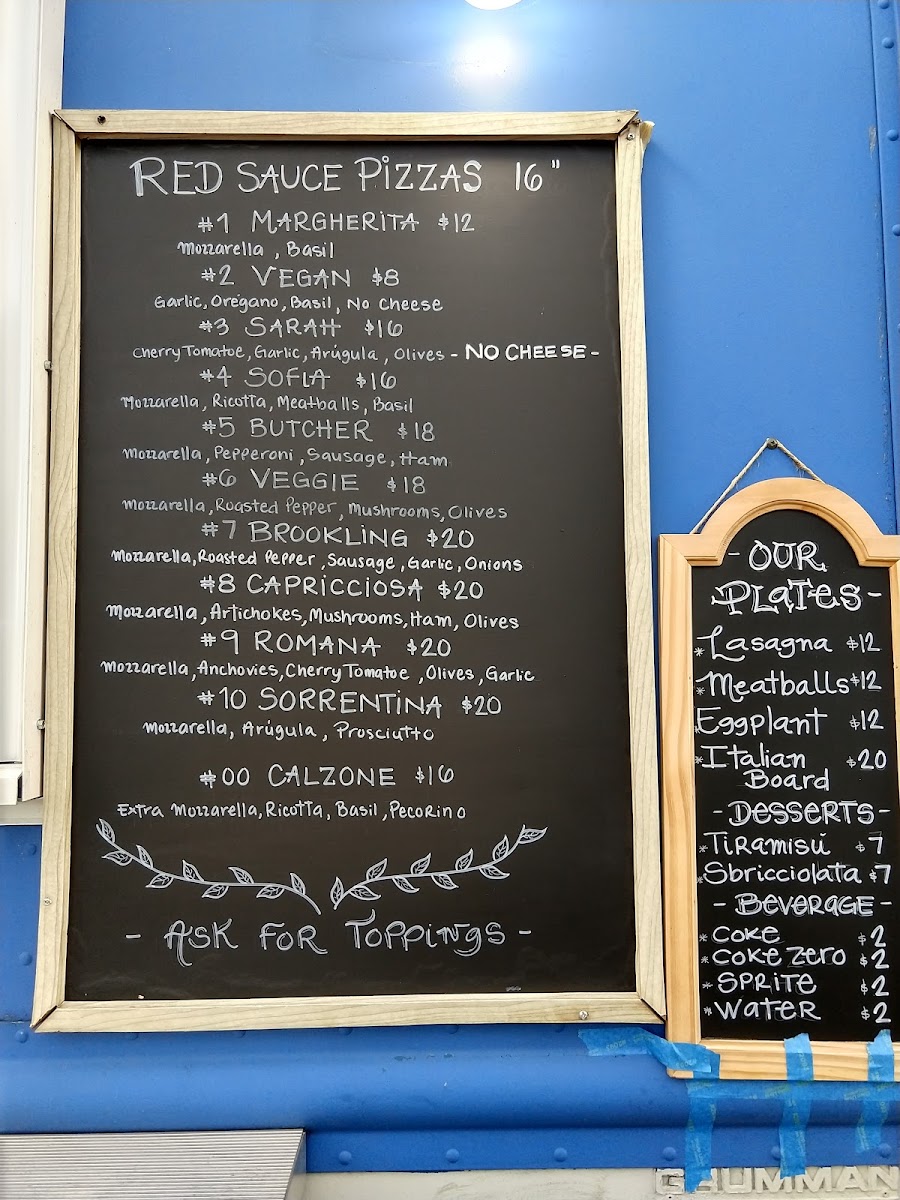 RED SAUCE PIZZAS 16"
#1 MARGHERITA $12
Mozzarella, Basil
#2 VEGAN $8
Garlic, Oregano, Basil, No Cheese
#3 SARAH $16
Cherry Tomatoe, Garlic, Arúgula, Olives - NO CHEESE -
#4 SOFIA $16
Mozzarella, Ricotta, Meatballs, Basil
#5 BUTCHER $18
Mozzarella, Pepperoni, Sausage, Ham
#6 VEGGIE $18
Mozzarella, Roasted Pepper, Mushrooms, Olives
#7 BROOKLING $20
Mozzarella, Roasted Pepper, Sausage, Garlic, Onions
#8 CAPRICCIOSA $20
Mozzarella, Artichokes, Mushrooms, Ham, Olives
#9 ROMANA $20
Mozzarella, Anchovies, Cherry Tomatoe, Olives, Garlic
#10 SORRENTINA $20
Mozzarella, Arúgula, Prosciutto
#00 CALZONE $16
Extra Mozzarella, Ricotta, Basil, Pecorino
- ASK FOR TOPPINGS -
- OUR
PLATES -
* Lasagna $12
* Meatballs $12
* Eggplant $12
* Italian $20
Board
- DESSERTS -
* Tiramisú $7
* Sbricciolata $7
- BEVERAGE -
* COKE $2
* COKE ZERO $2
* SPRITE $2
* WATER $2
GRUMMAN